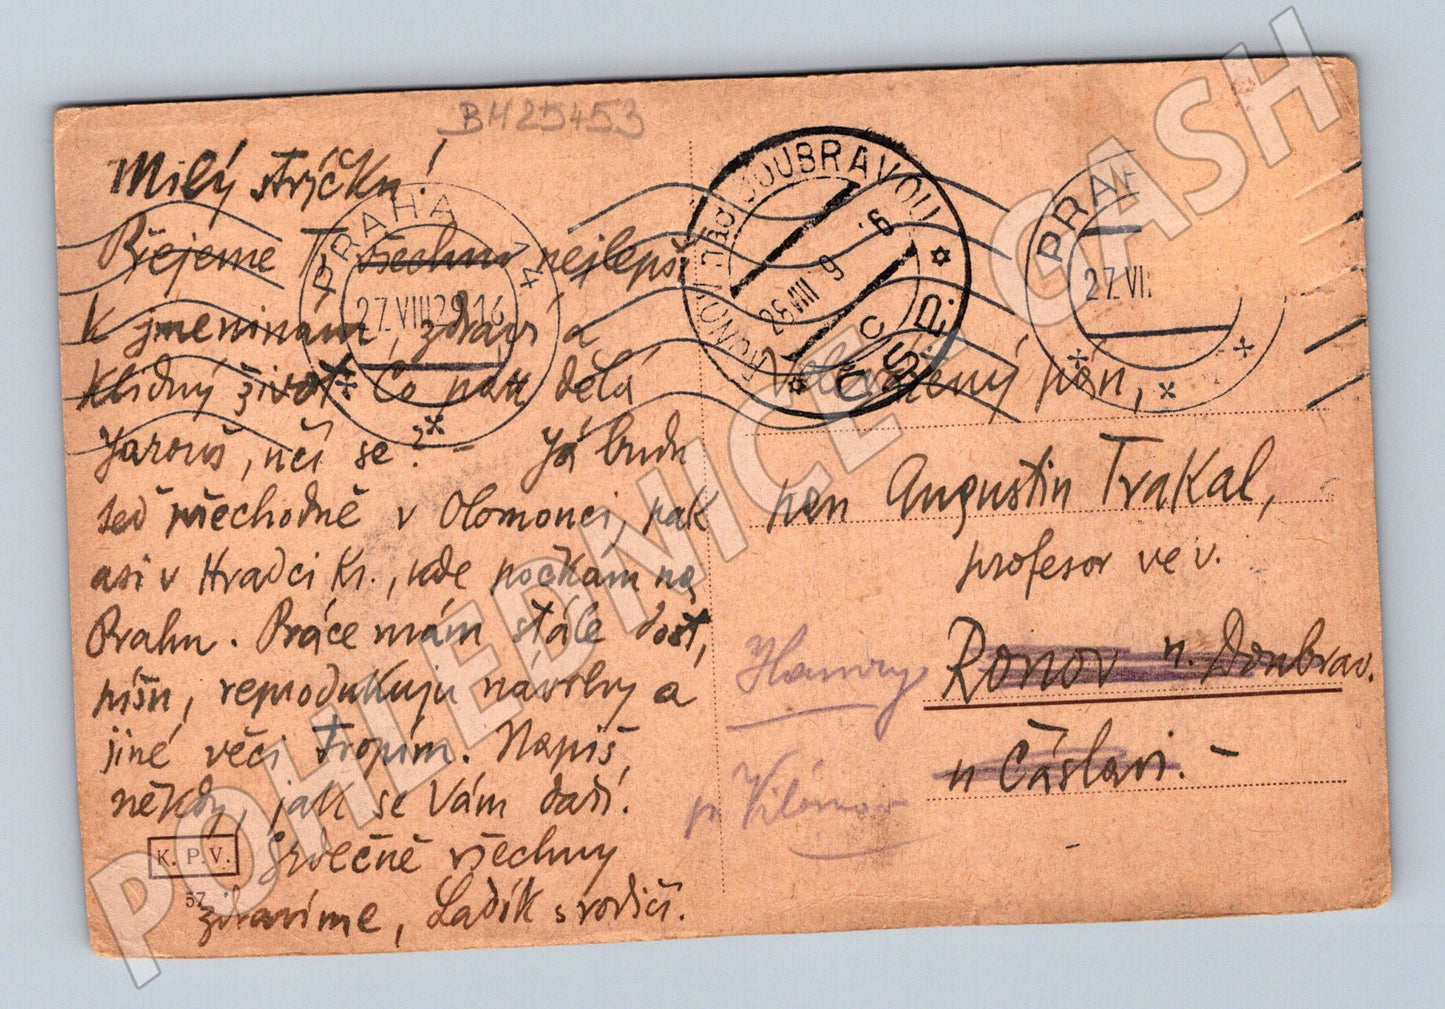 BH25453
Milý strýčku!
Přejeme Ti všechno nejlepší
k jmeninám, zdravý a
klidný život. Co pak dělá
Jarouš, učí se? - Já budu
teď přechodně v Olomouci, pak
asi v Hradci Kr., kde počkám na
Prahu. Práce mám stále dost,
píšu, reprodukuju návrhy a
jiné věci tropím. Napiš
někdy, jak se Vám daří.
Srdečně všechny
zdravíme, Ladík s rodiči.
K. P. V.
57
PRAHA 1
27.VIII 29.16
RONOV nad DOUBRAVOU
28.VIII 9
Č.S.P.
c
PRAHA
27.VII
Velevážený pán,
pan Augustin Trakal,
profesor ve v.
Ronov n. Doubrav.
u Čáslavi. -
Hamry
pr Vilémov
POHLEDNICE CASH